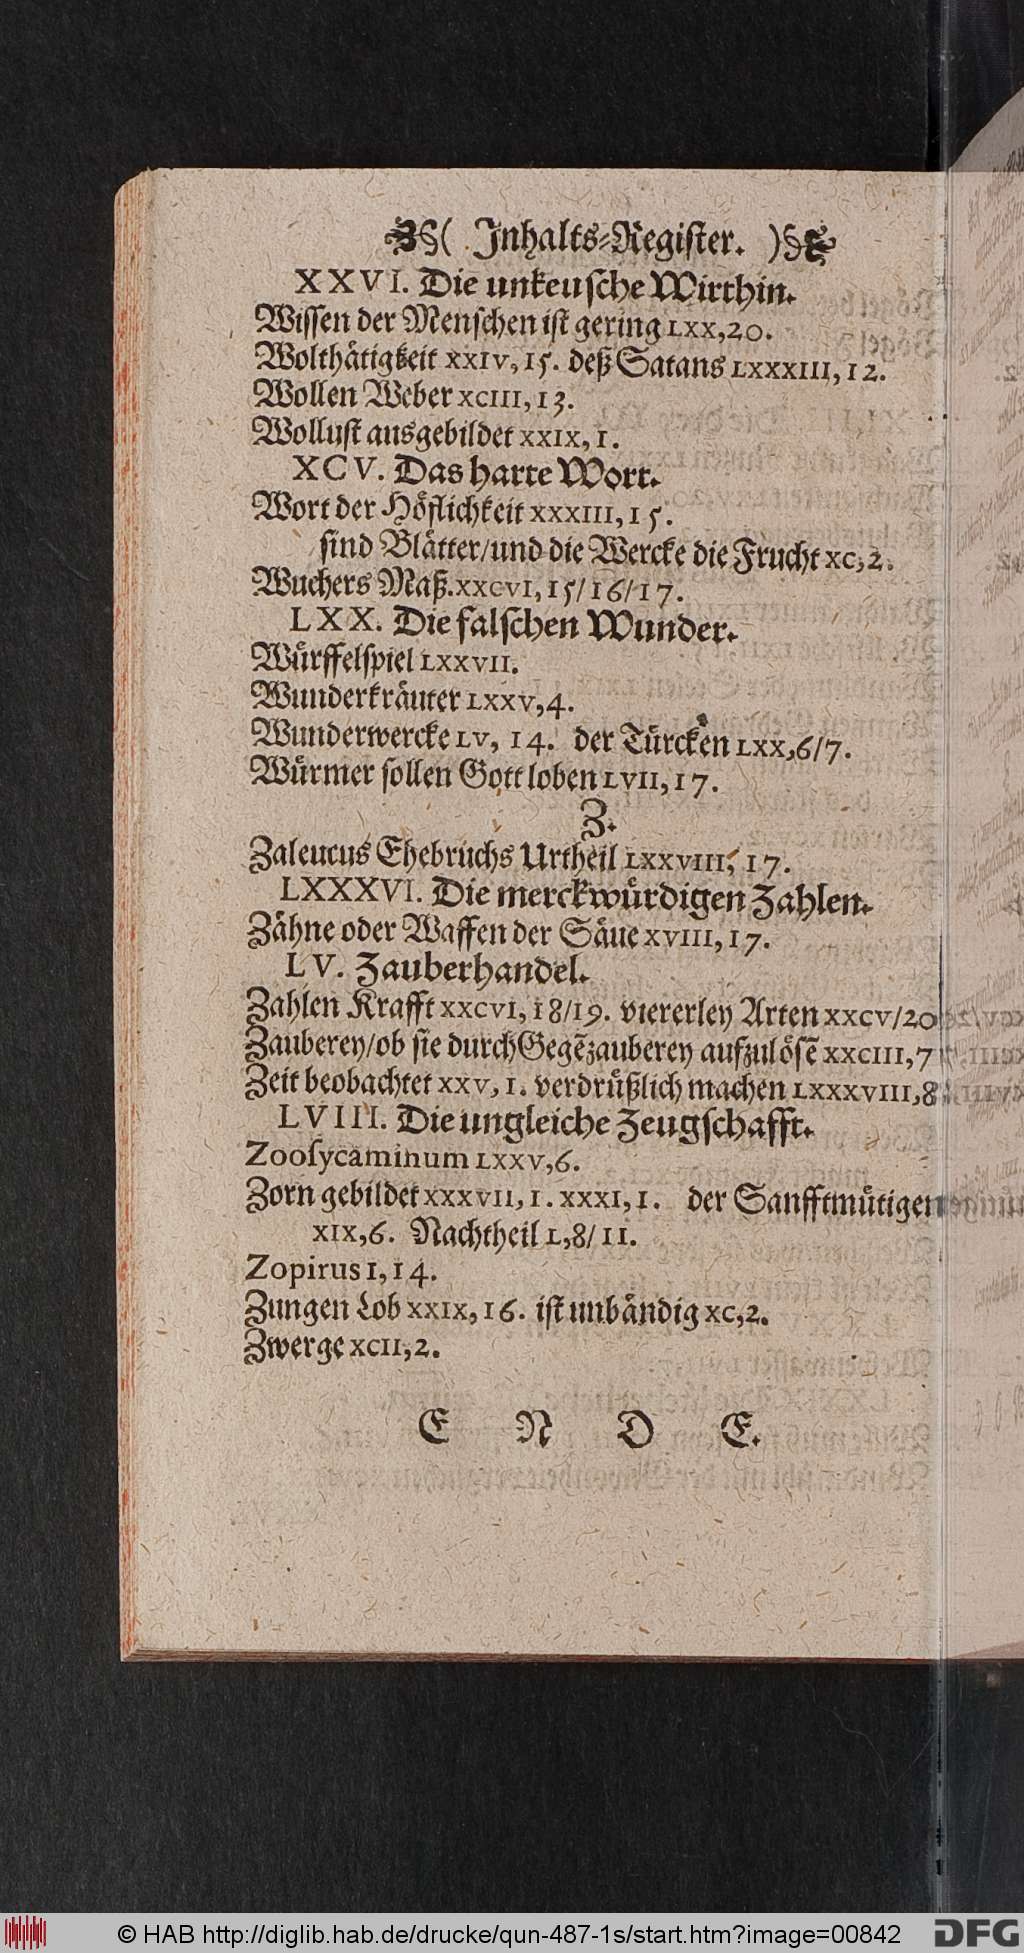 §( Inhalts-Register. )§
XXVI. Die unkeusche Wirthin.
Wissen der Menschen ist gering LXX,20.
Wolthätigkeit XXIV,15. deß Satans LXXXIII,12.
Wollen Weber XCIII,13.
Wollust ausgebildet XXIX,1.
XCV. Das harte Wort.
Wort der Höflichkeit XXXIII,15.
sind Blätter/und die Wercke die Frucht XC,2.
Wuchers Maß. XXCVI,15/16/17.
LXX. Die falschen Wunder.
Würffelspiel LXXVII.
Wunderkräuter LXXV,4.
Wunderwercke LV, 14. der Türcken LXX,6/7.
Würmer sollen Gott loben LVII,17.
Z.
Zaleucus Ehebruchs Urtheil LXXVIII, 17.
LXXXVI. Die merckwürdigen Zahlen.
Zähne oder Waffen der Säue XVIII,17.
LV. Zauberhandel.
Zahlen Krafft XXCVI,18/19. viererley Arten XXCV/20
Zauberey/ob sie durch Gegēzauberey aufzulösē XXCIII,7
Zeit beobachtet XXV,1. verdrüßlich machen LXXXVIII,8
LVIII. Die ungleiche Zeugschafft.
Zooſycaminum LXXV,6.
Zorn gebildet XXXVII,1. XXXI,1. der Sanfftmütigen
XIX,6. Nachtheil L,8/11.
Zopirus I,14.
Zungen Lob XXIX,16. ist unbändig XC,2.
Zwerge XCII,2.
E N D E.
© HAB http://diglib.hab.de/drucke/qun-487-1s/start.htm?image=00842
DFG